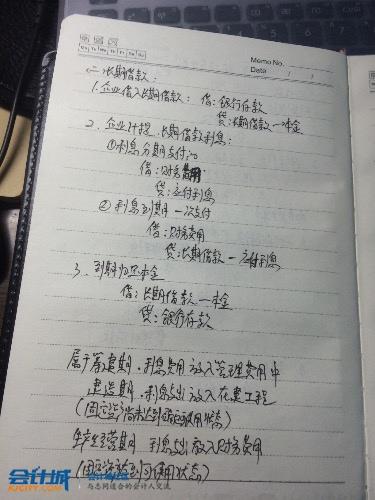 Memo No.
Date / /
二、长期借款：
1.企业借入长期借款：借：银行存款
贷：长期借款—本金
2、企业计提长期借款利息：
①利息分期支付：
借：财务费用
贷：应付利息
②利息到期一次支付
借：财务费用
贷：长期借款—应付利息
3、到期归还本金
借：长期借款—本金
贷：银行存款
属于筹建期，利息费用放入管理费用中
建造期，利息支出放入在建工程
(固定资产尚未达到可使用状态)
生产经营期 利息支出放入财务费用
(固定资产达到可使用状态)
会计城
KJCITY.COM
与志同道合的会计人交流